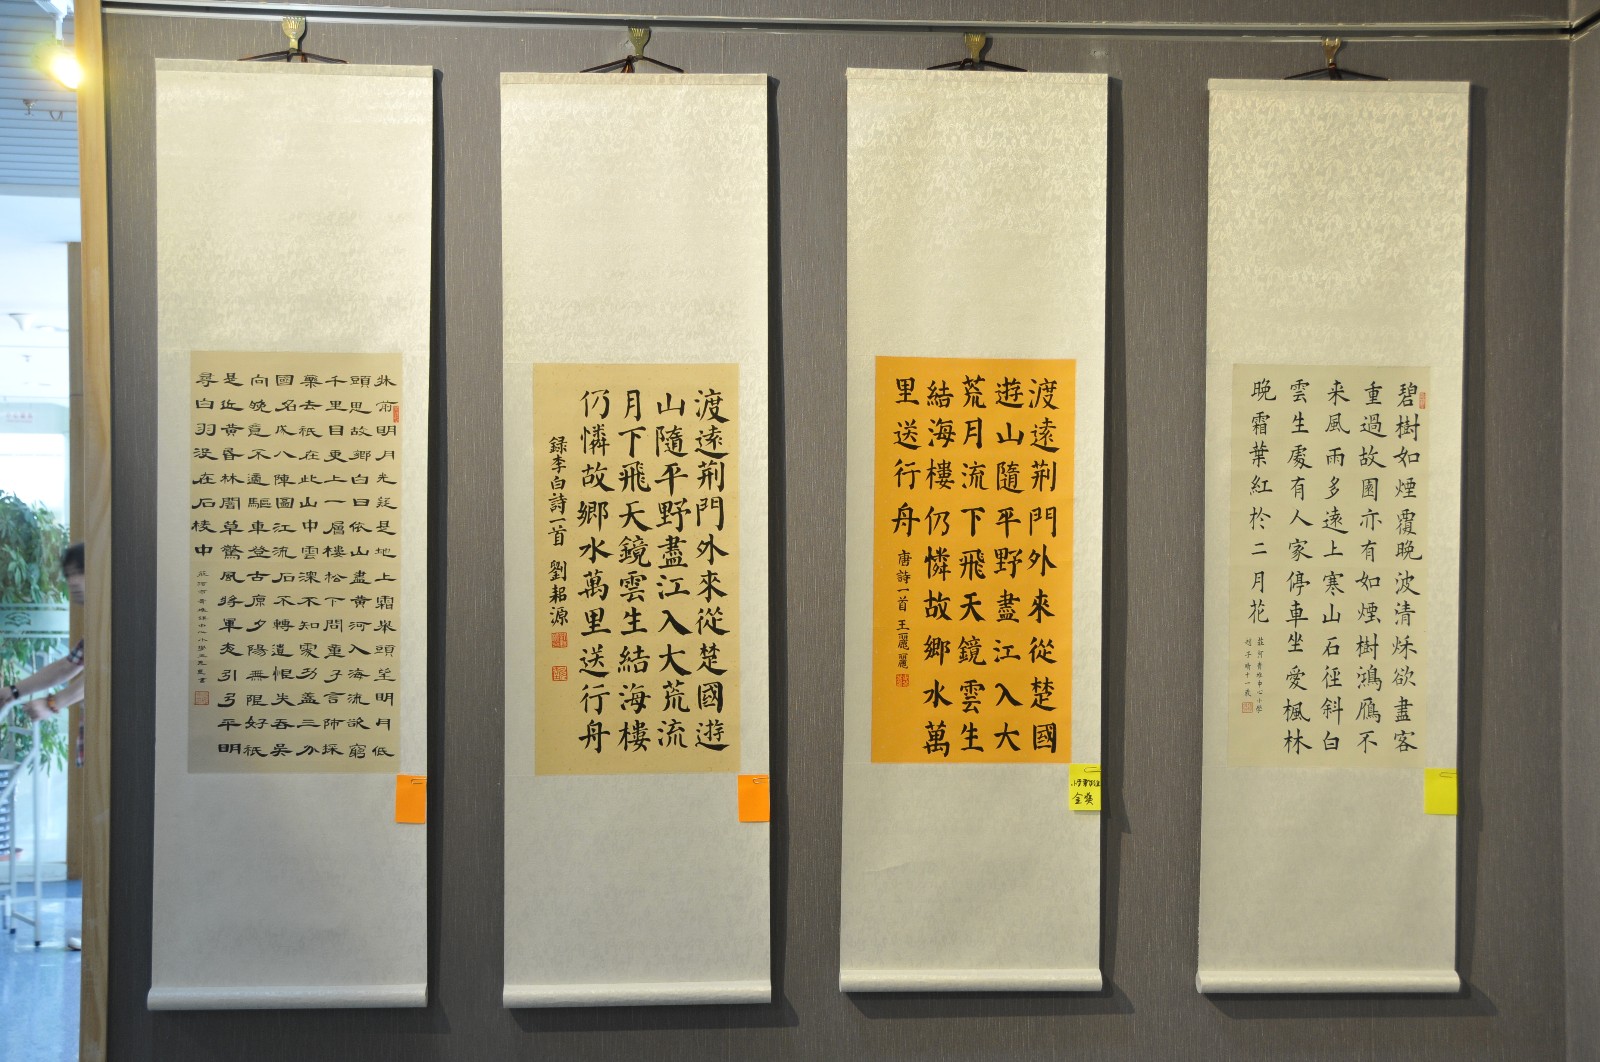 牀前明月光疑是地上霜舉頭望明月低
頭思故鄉白日依山盡黃河入海流欲窮
千里目更上一層樓松下問童子言師採
藥去祇在此山中雲深不知處功蓋三分
國名成八陣圖江流石不轉遺恨失吞吳
向晚意不適驅車登古原夕陽無限好祇
是近黃昏林闇草驚風將軍夜引弓平明
尋白羽沒在石棱中
渡遠荊門外來從楚國遊
山隨平野盡江入大荒流
月下飛天鏡雲生結海樓
仍憐故鄉水萬里送行舟
録李白詩一首 劉紹源
渡遠荊門外來從楚國
遊山隨平野盡江入大
荒月流下飛天鏡雲生
結海樓仍憐故鄉水萬
里送行舟 唐詩一首 王麗麗
金奖
碧樹如煙覆晚波清秌欲盡客
重過故園亦有如煙樹鴻鴈不
来風雨多遠上寒山石徑斜白
雲生處有人家停車坐愛楓林
晚霜葉紅於二月花
莊河青堆中心小學